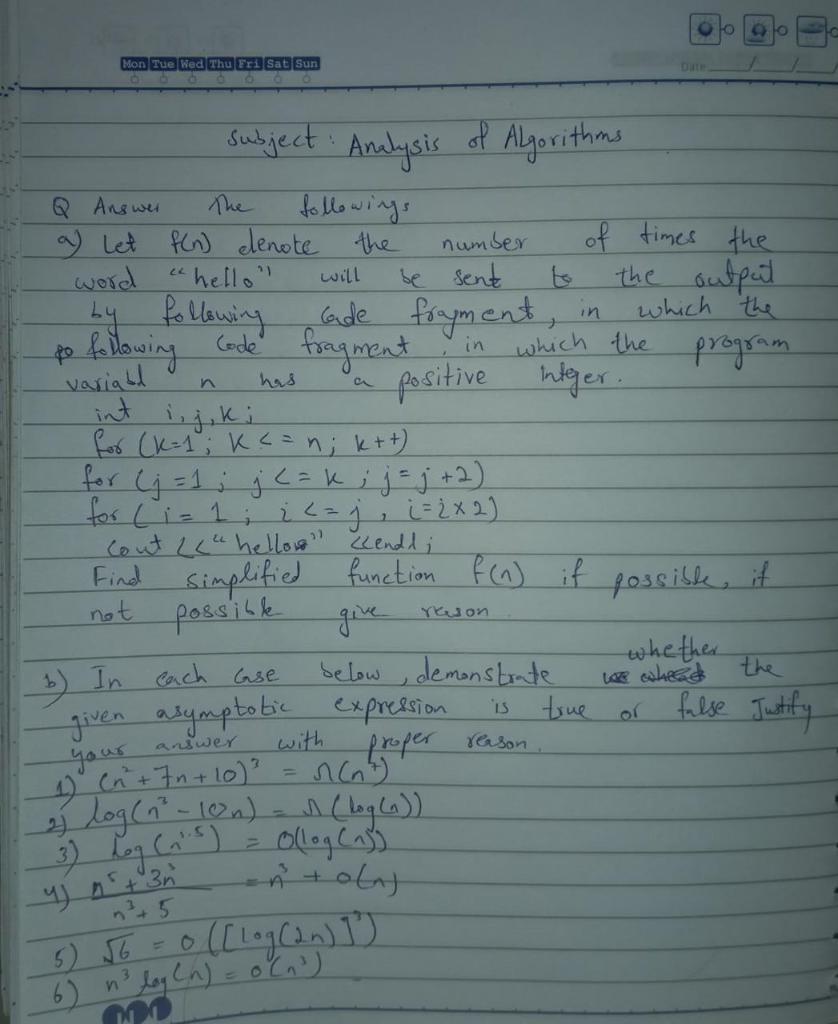 Mon Tue Wed Thu Fri Sat Sun
Date
Subject : Analysis of Algorithms
Q Answer The followings
a) Let f(n) denote the number of times the
word "hello" will be sent to the output
by following Code fragment, in which the
following Code fragment, in which the program
variabl n has a positive Integer.
int i, j, k;
for (k=1; K <= n; k++)
for (j = 1; j <= k; j = j +2)
for ( i = 1 ; i <= j, i=i×2)
Cout << "hello" <<endl;
Find simplified function f(n) if possible, if
not possible give reason
whether
b) In each Case below, demonstrate the
given asymptotic expression is true or false Justify
your answer with proper reason.
1) (n² + 7n + 10)³ = Ω(n⁷)
2) log(n³ - 10n) = Ω (log(n))
3) log(n^1.5) = O(log(n))
4) = n³ + O(n)
n³ + 5
5) √6 = O([log(2n)]³)
6) n³ log(n) = O(n³)